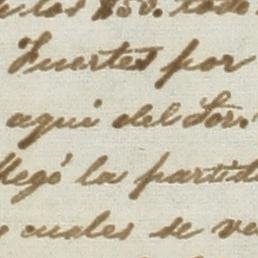 los $50. todo
Fuertes por
aqui del Sor.
llegó la partid
cuales se ve